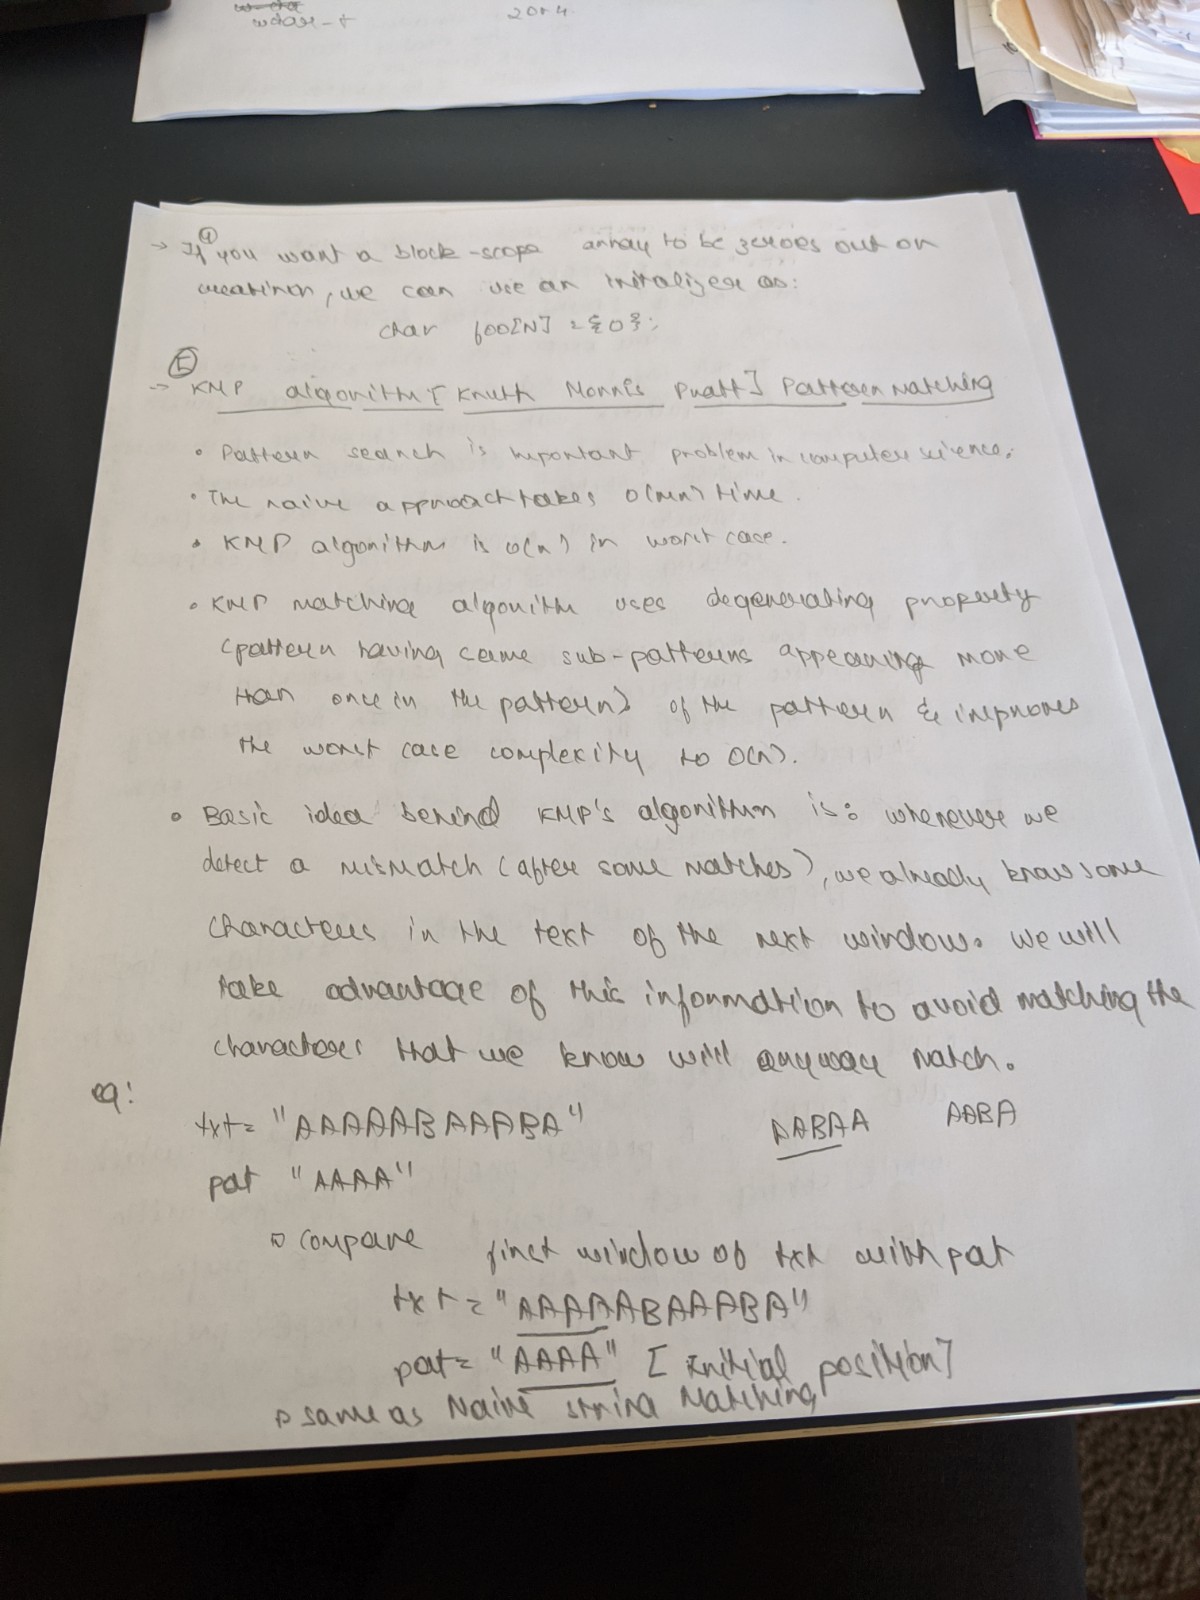 wdar-t
2014.
④
→ If you want a block-scope array to be zeroes out on
creation, we can use an initalizer as:
char foo[N] = {0};
⑤
→ KMP algorithm [Knuth Morris Pratt] Pattern Matching
• Pattern search is important problem in computer science.
• The naive approach takes O(mn) time.
• KMP algorithm is O(n) in worst case.
• KMP matching algorithm uses degenerating property
(pattern having same sub-patterns appearing more
than once in the pattern) of the pattern & improves
the worst case complexity to O(n).
• Basic idea behind KMP's algorithm is: whenever we
detect a mismatch (after some matches), we already know some
characters in the text of the next window. We will
take advantage of this information to avoid matching the
characters that we know will anyway match.
eg:
txt= "AAAAABAAABA" AABAA AABA
pat "AAAA"
▫ compare first window of txt with pat
txt = "AAAAABAAABA"
pat= "AAAA" [Initial position]
▫ same as Naive string Matching